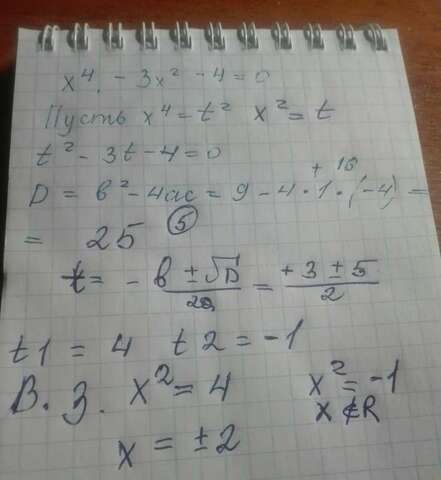 x⁴ - 3x² - 4 = 0
Пусть x⁴ = t² x² = t
t² - 3t - 4 = 0
+ 16
D = в² - 4ac = 9 - 4 · 1 · (-4) =
= 25 (5)
t = - в ± √D / 2a = + 3 ± 5 / 2
t1 = 4 t2 = -1
В. З. x² = 4 x² = -1
x ∉ R
x = ± 2